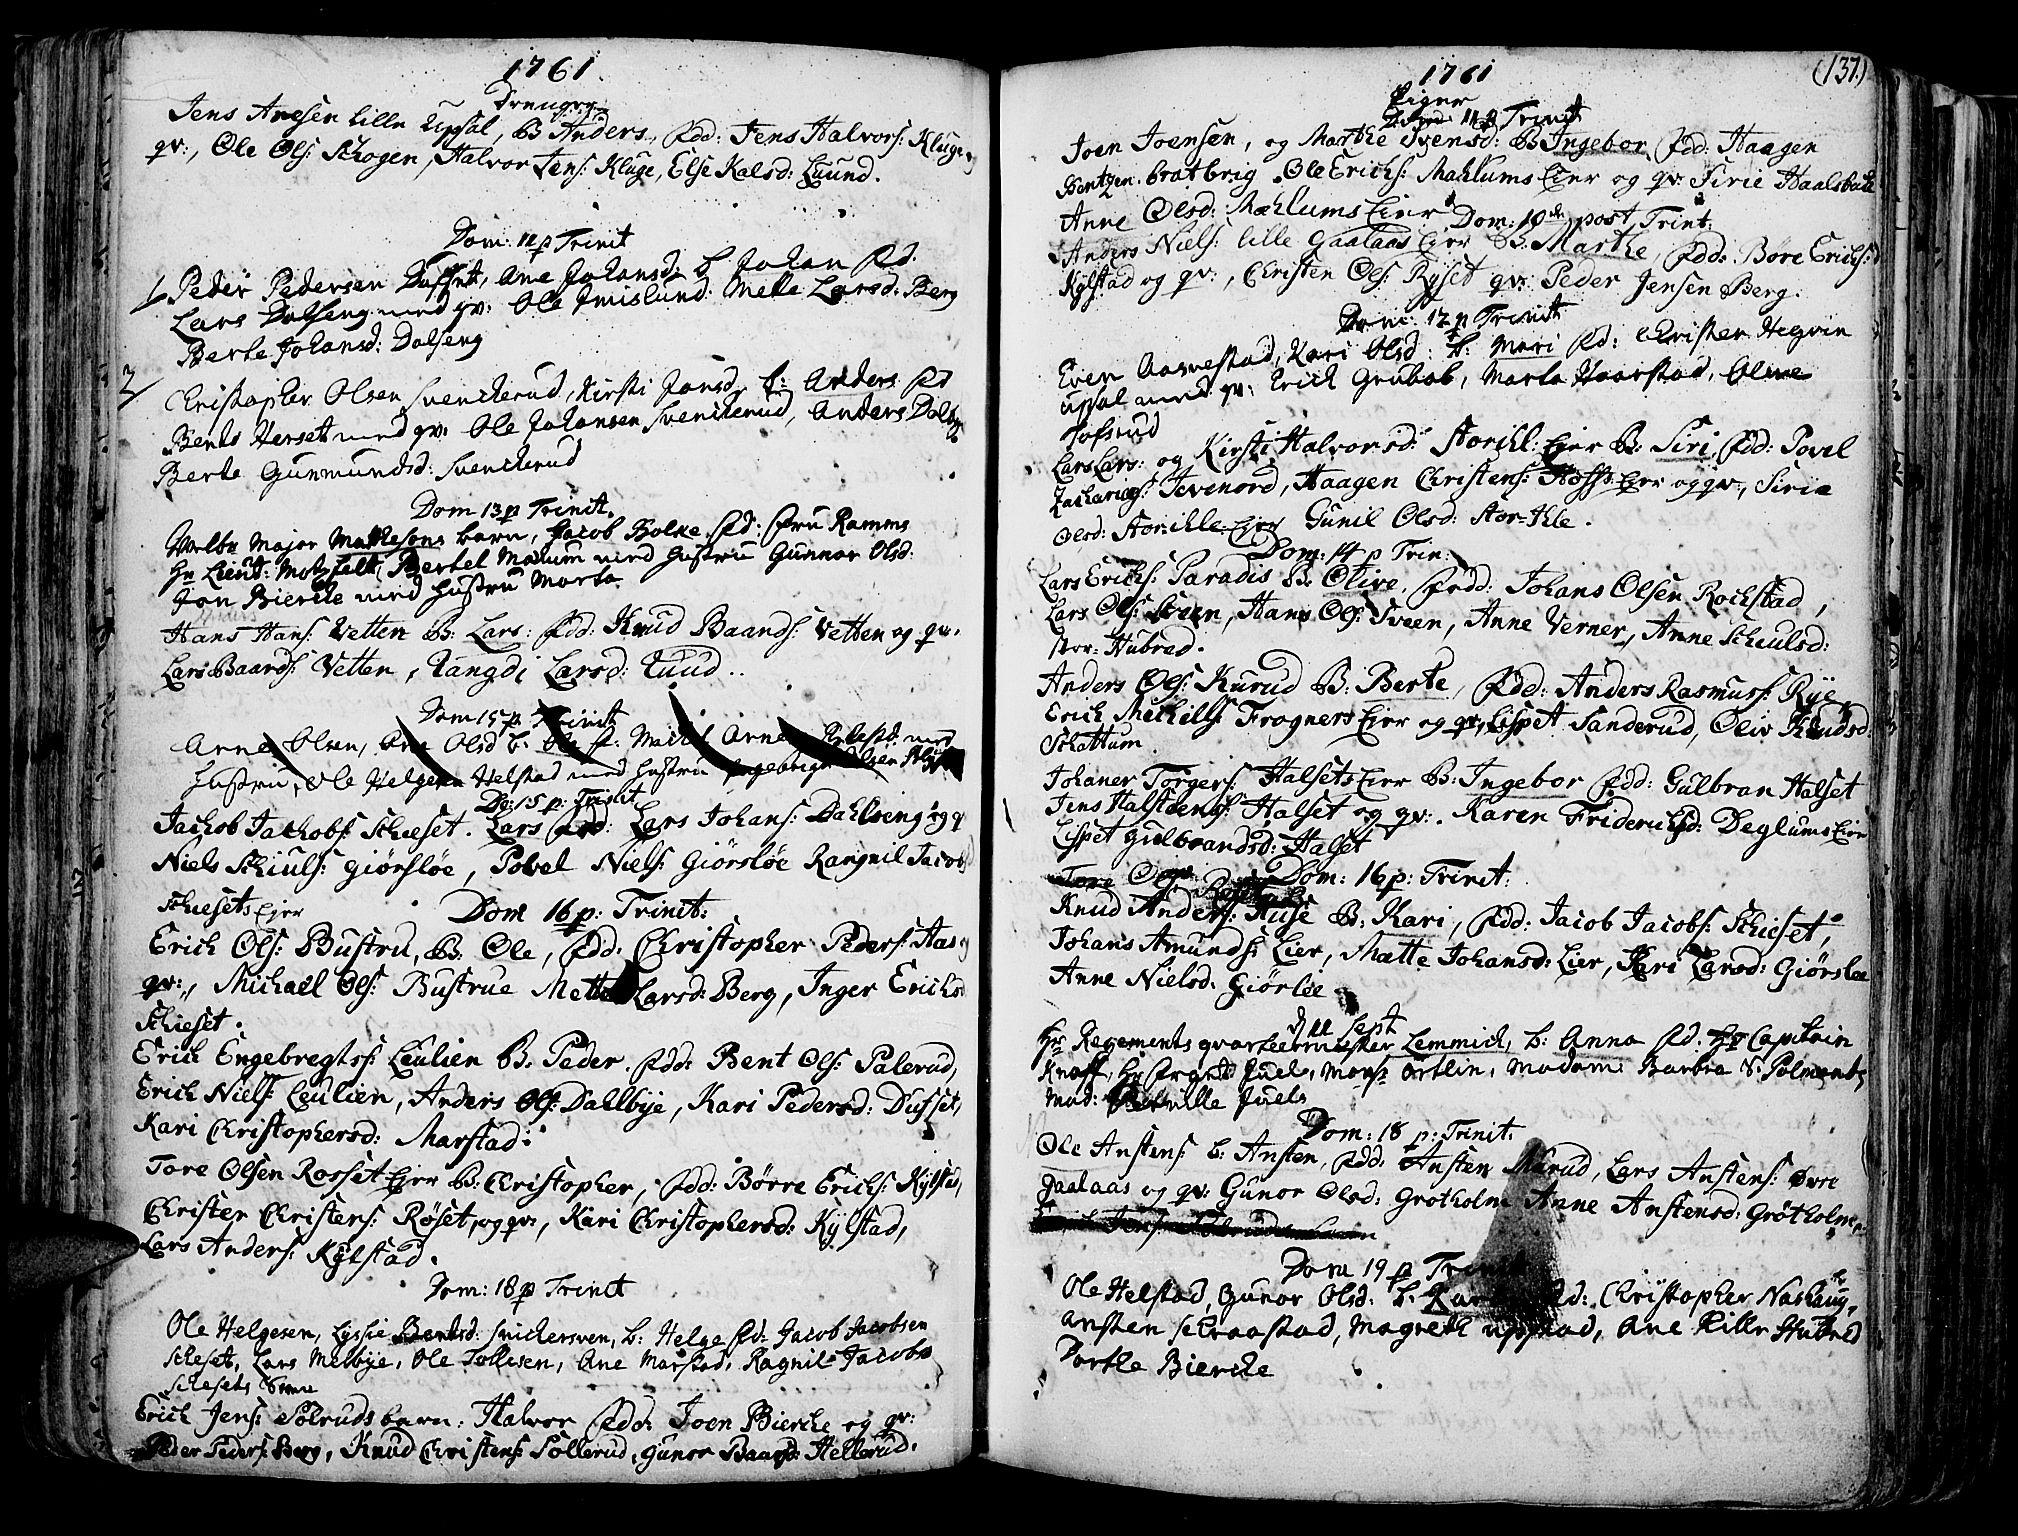 1761
Drenge
Jens Anesen lille Upsal, B: Anders, fdd: Jens Halvors: Kluge og
qv:, Ole Ols: Schogen, Halvor Jens: Kluge, Else Kalsd: Luund.
Dom: 11 p Trinit
1 Peder Pedersen Duffset, Ane Johansd: b Johan fd.
Lars Dalseng med qv: Ole Imislund: Mette Larsd: Berg
Berte Johansd: Dalseng
2 Christopher Olsen Svenckerud, Kirsti Jansd, b: Anders fd
Bents Herset med qv: Ole Johansen Svenckerud, Anders Dalbye
Berte Gunmundsd: Svenckerud
Dom 13 p Trinit.
Velbr Major Mathesons barn, Jacob Bolke, fd: fru Ramms
Hr Lieut: Motzfelt, Bertel Mælum med hustru Gunnor Olsd:
Jon Biercke med hustru Marta
Hans Hans: Vetten B: Lars: fdd: Knud Baards: Vetten og qv.
Lars Baards: Vetten, Rangdi Larsd: Ruud..
Dom 15 p Trinit
Arne Olsen, Olsd b: Ole Arne med
hustru, Ole Helgesen Helstad med hustru Ingebrigt Olsen
Do: 15 p: Trinit
Jachob Jachobs: Schieset. Lars fdd: Lars Johans: Dahlseng og q
Niels Schiuls: Giørsløe, Povel Niels: Giörsløe Rangnil Jacobsd
Schiesets Eier
Dom 16 p: Trinit:
Erich Ols: Bustru, B: Ole, fdd: Christopher Peders: Aas og
qv:, Michael Ols: Bustrue Mette Larsd: Berg, Inger Erichsd
Schieset.
Erich Engebregts: Leulien B: Peder. fdd: Bent Ols: Palerud,
Erich Niels: Leulien, Anders Ols: Dallbye, Kari Pedersd: Dufset,
Kari Christophersd: Marstad:
Tore Olsen Rosset Eier B: Christopher, fdd: Børre Erichs: Kylstad,
Christen Christens: Røset, og qv:, Kari Christophersd: Kylstad,
Lars Anders: Kylstad.
Dom: 18 p Trinit
Ole Helgesen, Lyssie Bentsd: Snickersven, b: Helge fd: Jacob Jacobsen
Scheset, Lars Melbye, Ole Tollesen, Ane Marstad, Ragnil Jacobs
Schesets
Erich Jens: Sølruds barn: Halvor fdd: Joen Biercke og qv:
Peder Peders: Berg, Knud Christens: Sollerud, Gunor Baards: Hellerud.
1761
(137.)
Piger
11 p Trinit
Joen Joensen, og Marthe Svensd: B Ingebor fdd: Haagen
Bentzen. bratbrig Ole Erichs: Mæhlums Eier og qv: Sirie Haalsbak
Anne Olsd: Mæhlums Eier Dom: 10de post Trint:
Anders Niels: lille Gaalaas Eier B: Marthe, fdd. Børe Erichs:
Kylstad og qv:, Christen Ols: Ryset qv: Peder Jensen Berg.
Dom: 12 p Trinit
Even Aasnestad, Kari Olsd: b: Mari fd: Christen Hegvin
upsal med qv: Erich Grubob, Marta Haarstad, Oline
Tofsrud
Lars Lars: og Kirsti Halvorsd: Storihl: Eier B: Siri, fdd: Povel
Zacharias: Tevenord, Haagen Christens: Hoffs Eier og qv:, Sirie
Olsd: Stor-ihle Eier Gunil Olsd: Stor-Ihle.
Dom: 14 p Trin:
Lars Erichs: Paradis B: Olive, fdd: Johans Olsen Rochstad,
Lars Ols: Sveen, Hans Ols: Sveen, Anne Verner, Anne Schiulsd:
Stor-Hubred.
Anders Ols: Kurud B: Berte, fdd: Anders Rasmus: Rye
Erich Michells: Frogners Eier og qv, Lispet Sanderud, Oliv Knudsd
Schattum
Johanes Torgers: Halsets Eier B: Ingebor fdd: Gulbran Halset
Jens Halstens: Halset og qv:. Karen Friderichsd: Deglums Eier
Lispet Gulbrandsd: Halset
Dom: 16 p: Trinit:
Knud Anders: Huse B: Kari, fdd: Jacob Jacobs: Schieset,
Johans Amunds: Lier, Mætte Johansd: Lier, Kari Larsd: Giørslee
Anne Nielsd: Giörlie
d 11 Sept
Hr Regements qvarteermester Lemmich, b: Anna fd. Hr Capitain
Knoff, Hr Juel, Mons: Ortlin, Madam: Barbra S: Polment,
Mad: Juels
Dom: 18 p: Trinit:
Ole Anstens: b: Ansten, fdd: Ansten Narud, Lars Anstens: Øvre
Gaalaas og qv: Gunor Olsd: Grotholm Anne Anstensd: Grøtholm,
Dom 19 p Trinit
Ole Helstad, Gunor Olsd: b: fd: Christopher Nashaug,
Ansten Schraastad, Magrete uppstad, Ane Lille Hubred
Dorthe Biercke